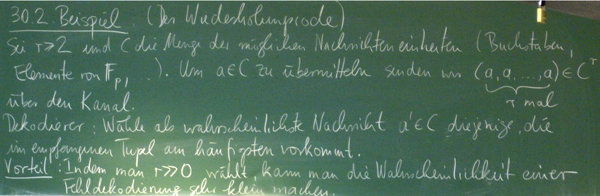 30.2. Beispiel. (Der Wiederholungscode)
Sei r≥2 und C die Menge der möglichen Nachrichteneinheiten (Buchstaben,
Elemente von 𝔽p, ...). Um a∈C zu übermitteln senden wir (a,a,...,a)∈C^r
r mal
über den Kanal.
Dekodierer: Wähle als wahrscheinlichste Nachricht a'∈C diejenige, die
im empfangenen Tupel am häufigsten vorkommt.
Vorteil: Indem man r≫0 wählt, kann man die Wahrscheinlichkeit einer
Fehldekodierung sehr klein machen.